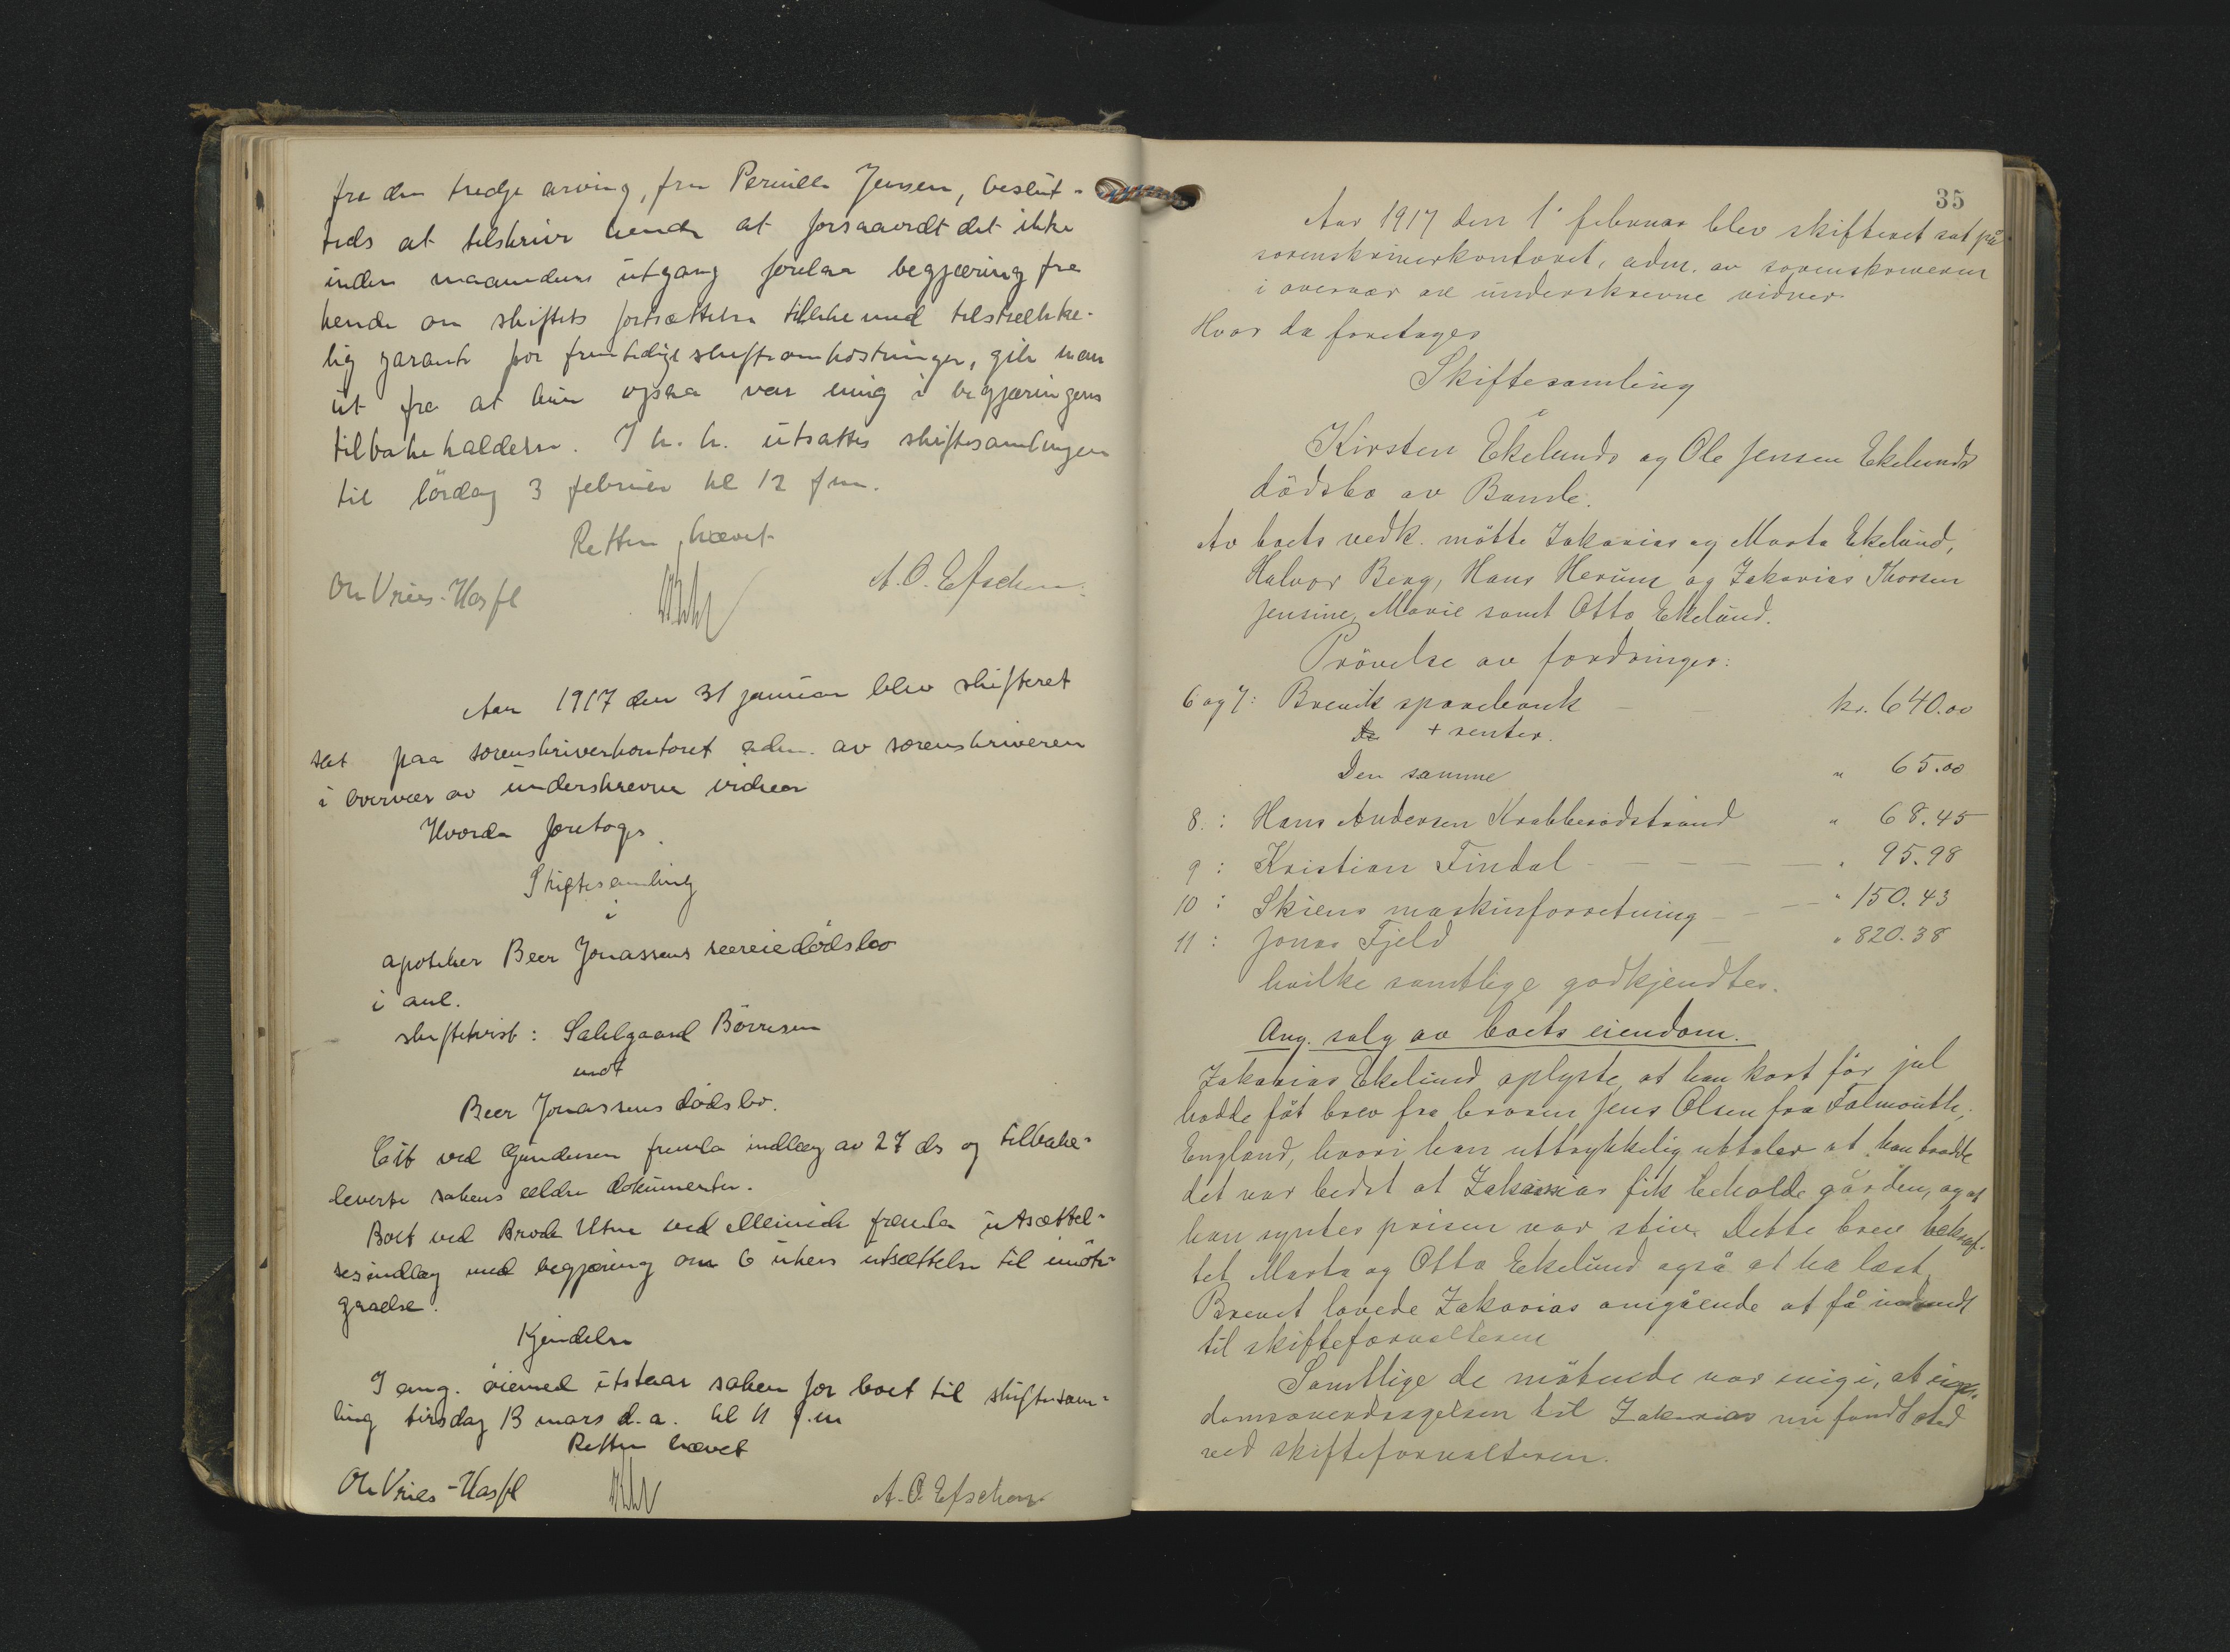 fra den tredje arving, fru Pernille Jensen, beslut-
teds at tilskrive hende at forsaavidt det ikke
inden maanedens utgang forelaa begjæring fra
hende om skiftets fortsættelse tillike med tilstrække-
lig garanti for fremtidige skifteomkostninger, gik man
ut fra at hun ogsaa var enig i begjæringens
tilbakeholdelse. I h. h. utsattes skiftesamlingen
til lördag 3 februar kl 12 fm.
Retten hævet
A. O. Efschen
Aar 1917 den 31 januar blev skifteret
sat paa sorenskriverkontoret adm. av sorenskriveren
i overvær av underskrevne vidner
Hvorda foretoges
Skiftesamling
i
apoteker Beer Jonassens særeiedödsbo
i anl.
skiftetvist: Sahlgaard Börresen
mot
Beer Jonassens dödsbo.
Cit ved Gundersen fremla indlæg av 27 ds og tilbake-
leverte sakens ældre dokumenter.
Boet ved Brode Utne ved Meinich fremla utsættel-
sesindlæg med begjæring om 6 ukers utsættelse til imöte-
gaaelse.
Kjendelse
I ang. öiemed utstaar saken for boet til skiftesam-
ling tirsdag 13 mars d.a. kl 11 f.m
Retten hævet
A. O. Efschen
35
Aar 1917 den 1' februar blev skifteret sat på
sorenskriverkontoret, adm. av sorenskriveren
i overvær av underskrevne vidner.
Hvor da foretages
Skiftesamling
i
Kirsten Ekelunds og Ole Jensen Ekelunds
dödsbo av Bamle.
Av boets vedk. mötte Zakarias og Marta Ekelund,
Halvor Berg, Hans Herum og Zakarias Thorsen
Jensine, Marie samt Otto Ekelund.
Prövelse av fordringer:
6 og 7: Brevik sparebank — — kr. 640.00
+ renter.
Den samme " 65.00
8. : Hans Andersen Krabberödstrand " 68.45
9 : Kristian Findal - — — — — " 95.98
10 : Skiens maskinforretning — — — " 150.43
11 : Jonas Fjeld — " 820.38
hvilke samtlige godkjendtes.
Ang. salg av boets eiendom.
Zakarias Ekelund oplyste, at han kort för jul
hadde fåt brev fra broren Jens Olsen fra Falmouth,
England, hvori han uttrykkelig uttaler at han trodde
det var bedst at Zakarias fik beholde gården, og at
han syntes prisen var stiv. Dette brev bekræf-
tet Marta og Otto Ekelund også at ha læst.
Brevet lovede Zakarias omgående at få indsendt
til skifteforvalteren
Samtlige de mötende var enig i, at eien-
domsoverdragelsen til Zakarias nu fandt sted
ved skifteforvalteren.